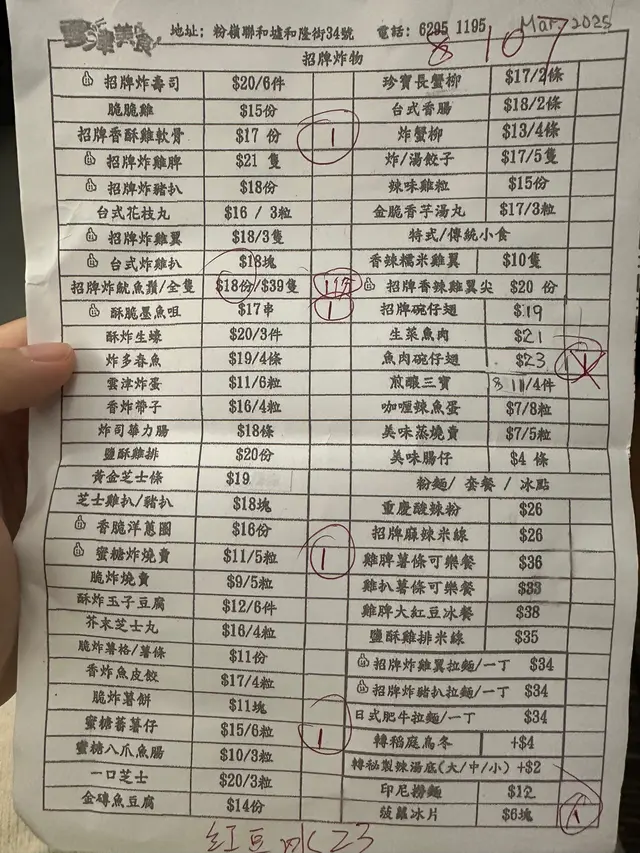 雲津美食 地址: 粉嶺聯和墟和隆街34號 電話: 6295 1195 Mar. 2025
8 10 7
招牌炸物
招牌炸壽司 $20/6件
脆脆雞 $15份
招牌香酥雞軟骨 $17 份 1
招牌炸雞脾 $21 隻
招牌炸豬扒 $18份
台式花枝丸 $16 / 3粒
招牌炸雞翼 $18/3隻
台式炸雞扒 $18塊
招牌炸魷魚鬚/全隻 $18份/$39隻 1份
酥脆墨魚咀 $17串 1
酥炸生蠔 $20/3件
炸多春魚 $19/4條
雲津炸蛋 $11/6粒
香炸帶子 $16/4粒
炸司華力腸 $18條
鹽酥雞排 $20份
黃金芝士條 $19
芝士雞扒/豬扒 $18塊
香脆洋蔥圈 $16份
蜜糖炸燒賣 $11/5粒 1
脆炸燒賣 $9/5粒
酥炸玉子豆腐 $12/6件
芥末芝士丸 $16/4粒
脆炸薯格/薯條 $11份
香炸魚皮餃 $17/4粒
脆炸薯餅 $11塊
蜜糖蕃薯仔 $15/6粒 1
蜜糖八爪魚腸 $10/3粒
一口芝士 $20/3粒
金磚魚豆腐 $14份
珍寶長蟹柳 $17/2條
台式香腸 $18/2條
炸蟹柳 $13/4條
炸/湯餃子 $17/5隻
辣味雞粒 $15份
金脆香芋湯丸 $17/3粒
特式/傳統小食
香辣糯米雞翼 $10隻
招牌香辣雞翼尖 $20 份
招牌碗仔翅 $19
生菜魚肉 $21
魚肉碗仔翅 $23 1
煎釀三寶 8 11/4件
咖喱辣魚蛋 $7/8粒
美味蒸燒賣 $7/5粒
美味腸仔 $4 條
粉麵/ 套餐 / 冰點
重慶酸辣粉 $26
招牌麻辣米線 $26
雞脾薯條可樂餐 $36
雞扒薯條可樂餐 $33
雞脾大紅豆冰餐 $38
鹽酥雞排米線 $35
招牌炸雞翼拉麵/一丁 $34
招牌炸豬扒拉麵/一丁 $34
日式肥牛拉麵/一丁 $34
轉稻庭烏冬 +$4
轉秘製辣湯底(大/中/小) +$2
印尼撈麵 $12
菠蘿冰片 $6塊 1
紅豆冰 23